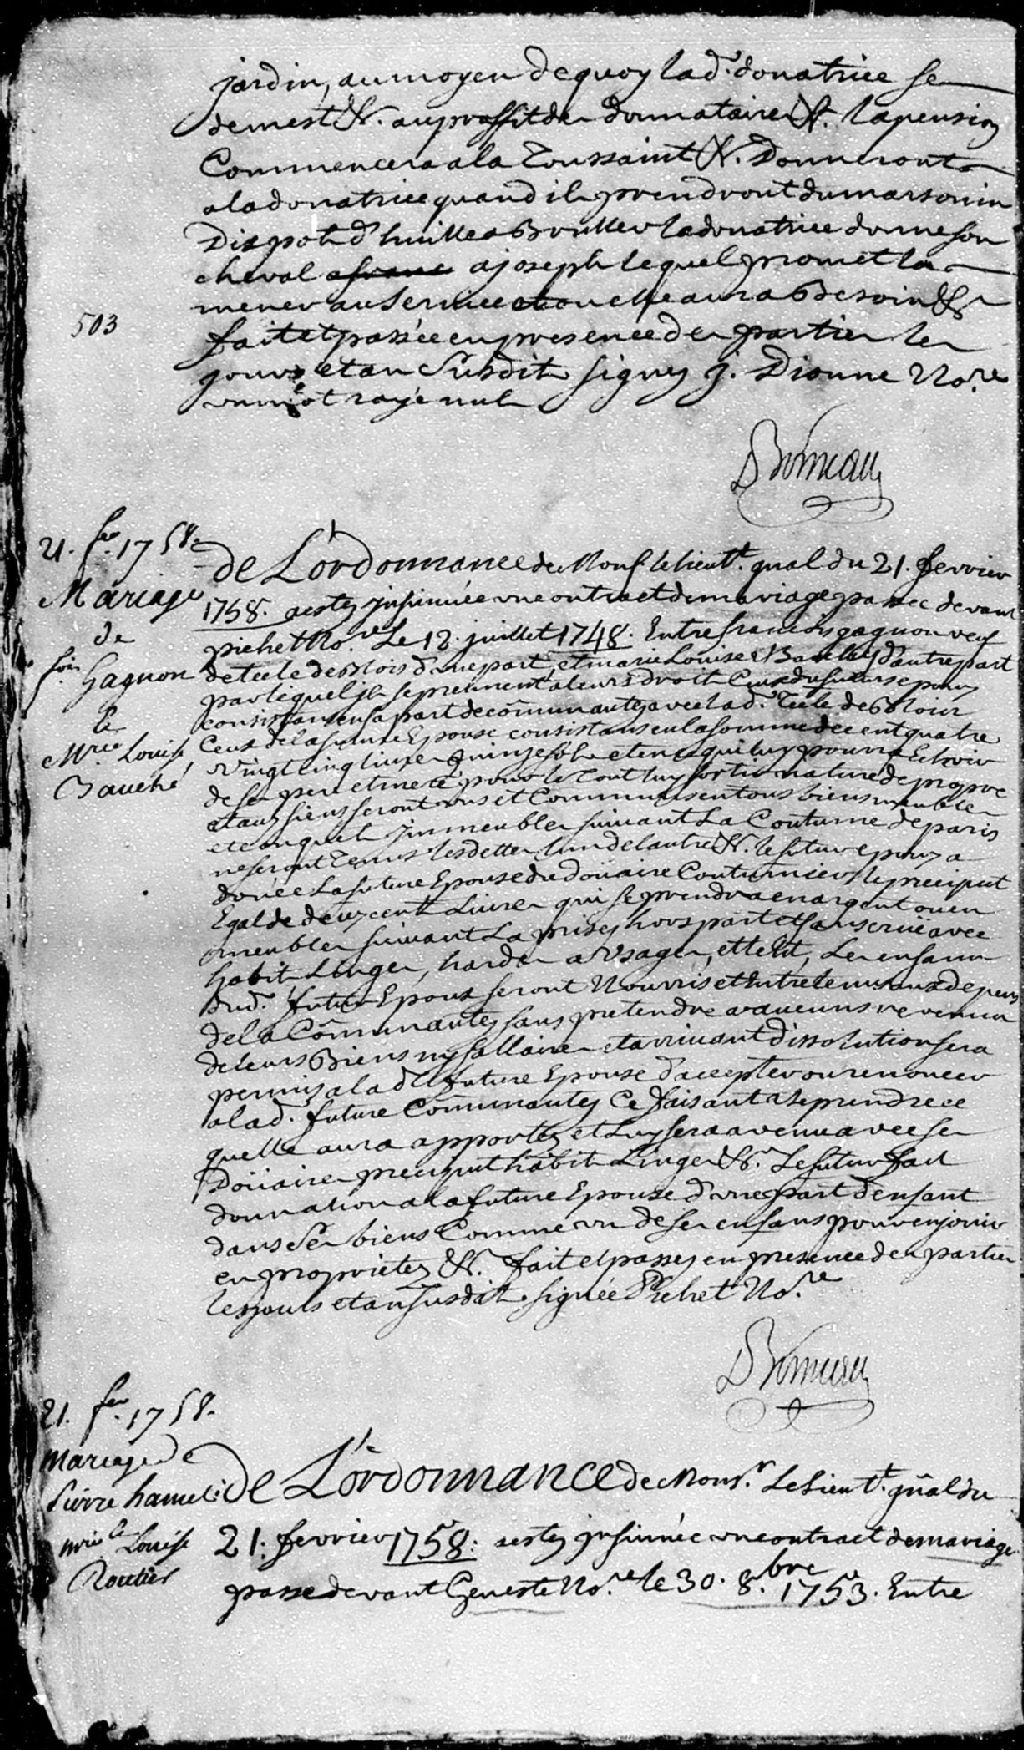 jardin, au moyen de quoy lad.e donatrice se
demest &c. au proffit des donnataires &c. la pension
Commencera a la Toussaint &c. Donneront
a la donatrice quand ils prendront du marsouin
Dix pots d'huille a Bruller la donatrice donne son
cheval a joseph lequel promet la
mener au service ou elle aura Besoin &c
503
fait et passée en presence des parties les
jours et an Susdits signez J. Dionne No.re
un mot rayé nul
Boineau
21. fer. 1758.
Mariage
de
fois Gagnon
&
Mrie Louise
Bauché
de L'ordonnance de Mons. le lieut.t gnal du 21. fevrier
1758. a esté insinuée un contract de mariage passée devant
pichet No.re Le 12. juillet 1748. Entre francois gagnon veuf
de tecle de Blois d'une part, et marie Louise Bauché d'autre part
par lequel ils se prennent a leurs droits Ceux du futur epoux
consistans en sa part de communauté avec lad.e Tecle de Blois
Ceux de la future Epouse consistans en la somme de cent quatre
vingt cinq livres quinze sols et en ce qui luy pourra Echoir
de ses pere et mere pour le tout luy sortir nature de propre
et aux siens seront uns et Communs en tous biens meubles
et conquets immeubles suivant La Coutume de paris
ne seront tenus des dettes l'un de l'autre &c. le futur epoux a
douée La future Epouse du doüaire Coutumier le preciput
Egal de deux cents Livres qui se prendra en argent ou en
meubles suivant La prisée hors part et sans crue avec
habits Linges, hardes a usages, et le lit, Les enfans
dud. futur Epoux seront Nourris et Entretenus aux depens
de la Communauté sans pretendre a aucuns revenus
de leurs Biens ny sallaires et arrivant dissolution sera
permis a lad.e future Epouse d'accepter ou renoncer
a lad. future Communauté Ce faisant a reprendre ce
quelle aura apporté et luy sera avenu avec ses
Doüaire preciput habits Linges &c. Le futur fait
donnation a la future Epouse d'une part d'enfant
dans Ses biens Comme un de ses enfans pour en jouir
en proprieté &c. fait et passé en presence des parties
les jours et an Susdits signée Pichet No.re
Boineau
21. fer. 1758.
Mariage de
Pierre hamel &
mrie Louise
Routier
de L'ordonnance de Mons.r Le lieut.t gnal du
21. fevrier 1758. a esté insinuée un contract de mariage
passé devant Geneste No.re le 30. 8.bre 1753. Entre